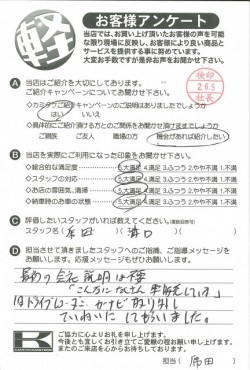 軽
お客様アンケート
当店では、お買い上げ頂いたお客様の声を可能
な限り現場に反映し、お客様により良い商品と
サービスを提供する事に努めています。
大変お手数ですが是非お声をお聞かせ下さい。
検印
2.6.5
社長
A 当店はご紹介を大切にしております。
ご紹介キャンペーンについてお聞かせ下さい
◇カミタケご紹介キャンペーンのご説明はありましたでしょうか
はい いいえ
◇具体的にご紹介頂ける方とのご関係をお聞かせ頂けますでしょうか
ご親族 ご友人 職場の方 機会があれば紹介したい
B 当店を実際にご利用になられた印象をお聞かせ下さい。
◇総合的な満足度 5.大満足 4.満足 3.ふつう 2.やや不満 1.不満
◇スタッフの対応 5.大満足 4.満足 3.ふつう 2.やや不満 1.不満
◇お店の雰囲気、清掃 5.大満足 4.満足 3.ふつう 2.やや不満 1.不満
◇納車時のお車の状態 5.大満足 4.満足 3.ふつう 2.やや不満 1.不満
C 評価したいスタッフがいれば教えてください。(複数回答可)
スタッフ名( )
D 担当させて頂きましたスタッフへのご指摘、ご指導メッセージを
お願いします。応援メッセージもぜひお願いします。
ていねいに してもらいました。
ご協力に心よりお礼を申し上げます。
今後とも宜しくお引き立てご愛顧の程お願い申し上げます。
またのご来店を心からお待ちしております。
担当( )